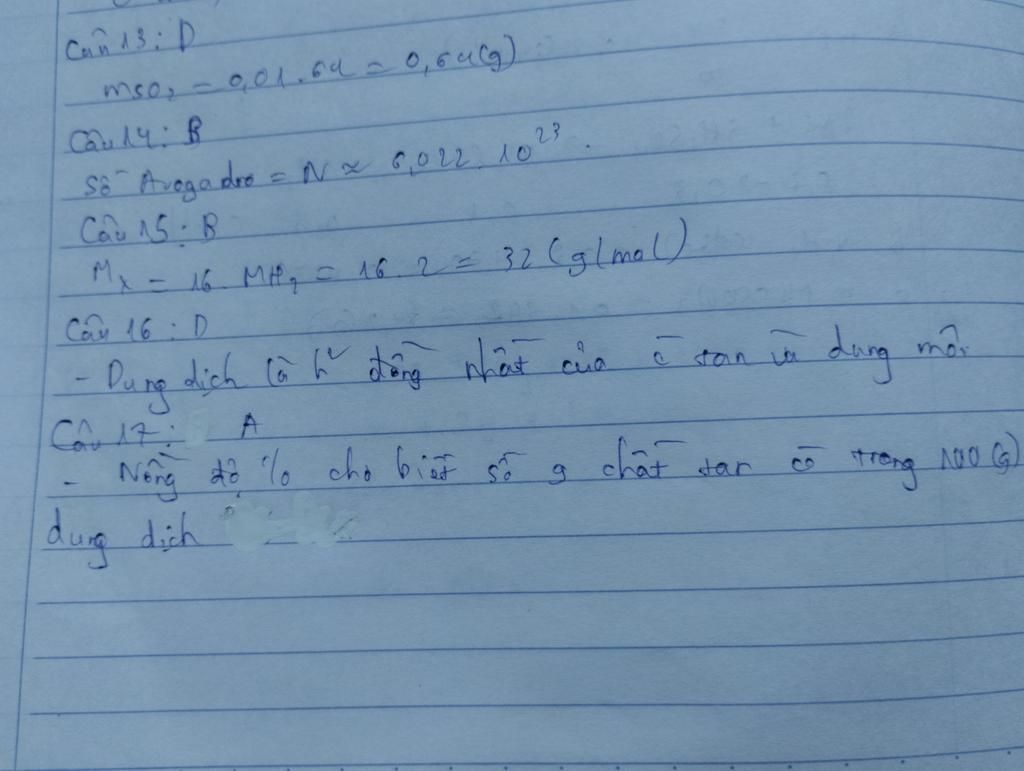 Câu 13: D
mSO₂ = 0,01.64 = 0,64(g)
Câu 14: B
Số Avogadro = N ≈ 6,022.10²³.
Câu 15: B
Mₓ = 16. MH₂ = 16.2 = 32 (g/mol)
Câu 16: D
- Dung dịch là h² đồng nhất của c̄ tan và dung môi
Câu 17: A
- Nồng độ % cho biết số g chất tan có trong 100 (g)
dung dịch